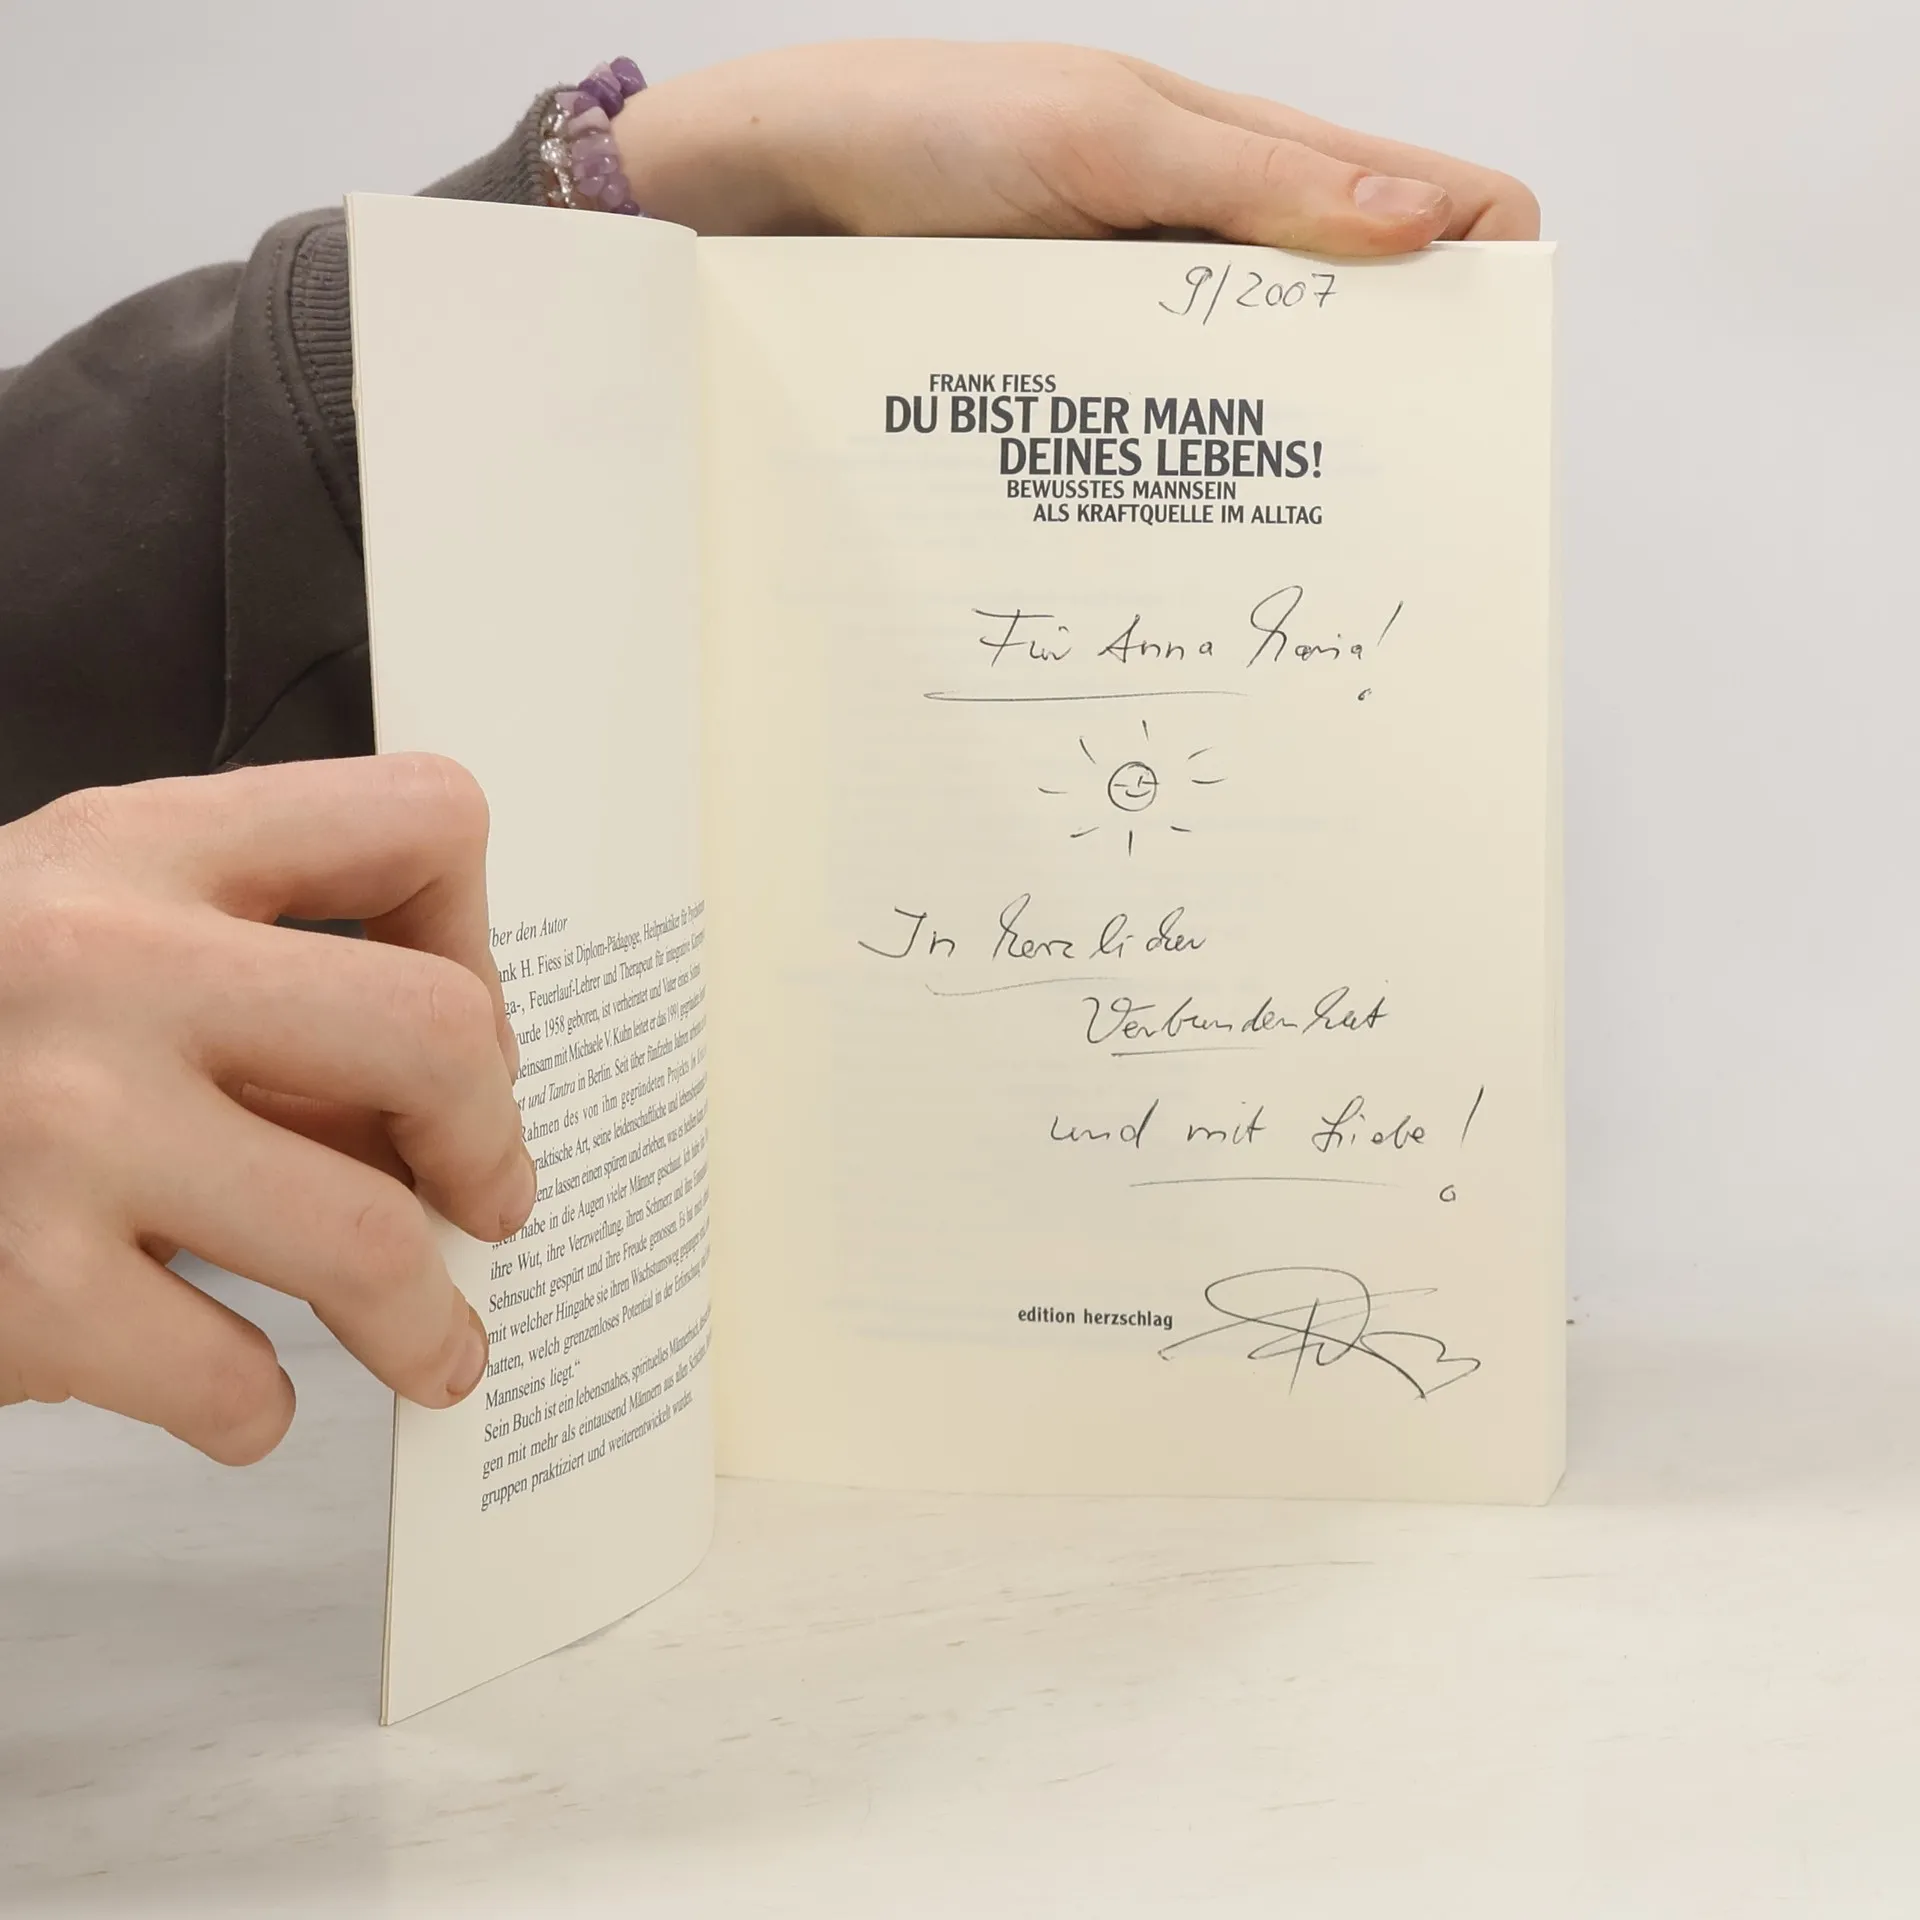 Über den Autor
ank H. Fiess ist Diplom-Pädagoge, Heilpraktiker für
ga-, Feuerlauf-Lehrer und Therapeut für integrative
urde 1958 geboren, ist verheiratet und Vater eines
einsam mit Michaele V. Kuhn leitet er das 1991 gegründete
st und Tantra in Berlin. Seit über fünfzehn Jahren
Rahmen des von ihm gegründeten Projekts
raktische Art, seine leidenschaftliche und
enz lassen einen spüren und erleben, was es
„Ich habe in die Augen vieler Männer geschaut. Ich habe
ihre Wut, ihre Verzweiflung, ihren Schmerz und ihre
Sehnsucht gespürt und ihre Freude genossen. Es hat mich
mit welcher Hingabe sie ihren Wachstumsweg gegangen sind
hatten, welch grenzenloses Potential in der Erforschung
Mannseins liegt.“
Sein Buch ist ein lebensnahes, spirituelles Männerbuch,
gen mit mehr als eintausend Männern aus allen
gruppen praktiziert und weiterentwickelt wurden.
9/2007
FRANK FIESS
DU BIST DER MANN
DEINES LEBENS!
BEWUSSTES MANNSEIN
ALS KRAFTQUELLE IM ALLTAG
Für Anna Maria!
In herzlicher
Verbundenheit
und mit Liebe!
edition herzschlag